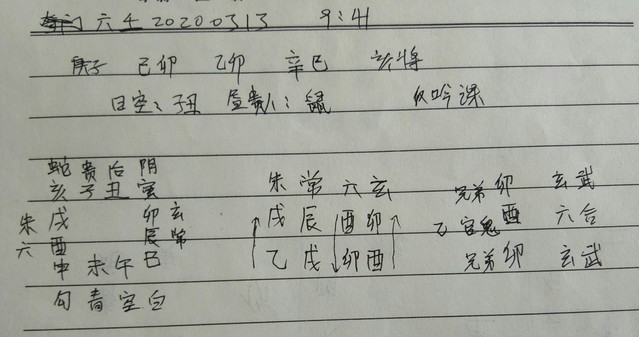 六壬 20200313 9:41
庚子 己卯 乙卯 辛巳 亥将
日空:子丑 昼贵人:鼠 反吟课
蛇贵后阴
亥子丑寅 朱常六玄 兄弟卯 玄武
朱戌 卯玄 戌辰酉卯 乙官鬼酉 六合
六酉 辰常
申未午巳 乙戌卯酉 兄弟卯 玄武
勾青空白